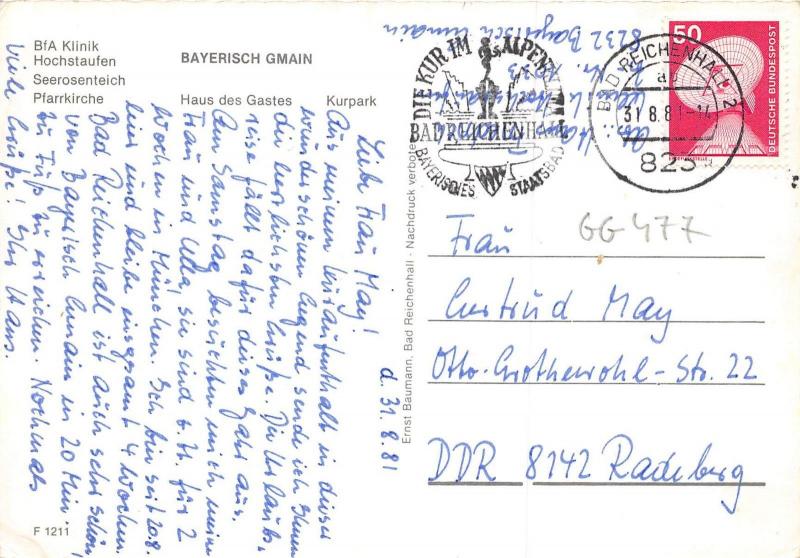 BfA Klinik
Hochstaufen
Seerosenteich
Pfarrkirche
BAYERISCH GMAIN
Haus des Gastes
Kurpark
d. 31.8.81
Liebe Frau May!
Aus meinem Kuraufenthalt in dieser
wunderschönen Gegend sende ich Ihnen
die herzlichsten Grüße. Die Urlaubs-
reise fällt dafür dieses Jahr aus.
Am Samstag besuchten mich meine
Frau und Ulla, sie sind z. Zt. für 2
Wochen in München. Ich bin seit 20.8.
hier und bleibe insgesamt 4 Wochen.
Bad Reichenhall ist auch sehr schön,
von Bayrisch Gmain in 20 Min.
zu Fuß zu erreichen. Nochmals
viele Grüße! Ihr Hans.
F 1211
Ernst Baumann, Bad Reichenhall - Nachdruck verboten
8232 Bayrisch Gmain
DIE KUR IM ALPENKLIMA
BAD REICHENHALL
BAYERISCHES STAATSBAD
BAD REICHENHALL 2
31.8.81-14
823
50
DEUTSCHE BUNDESPOST
GG 477
Frau
Gertrud May
Otto-Grothewohl-Str. 22
DDR 8142 Radeberg